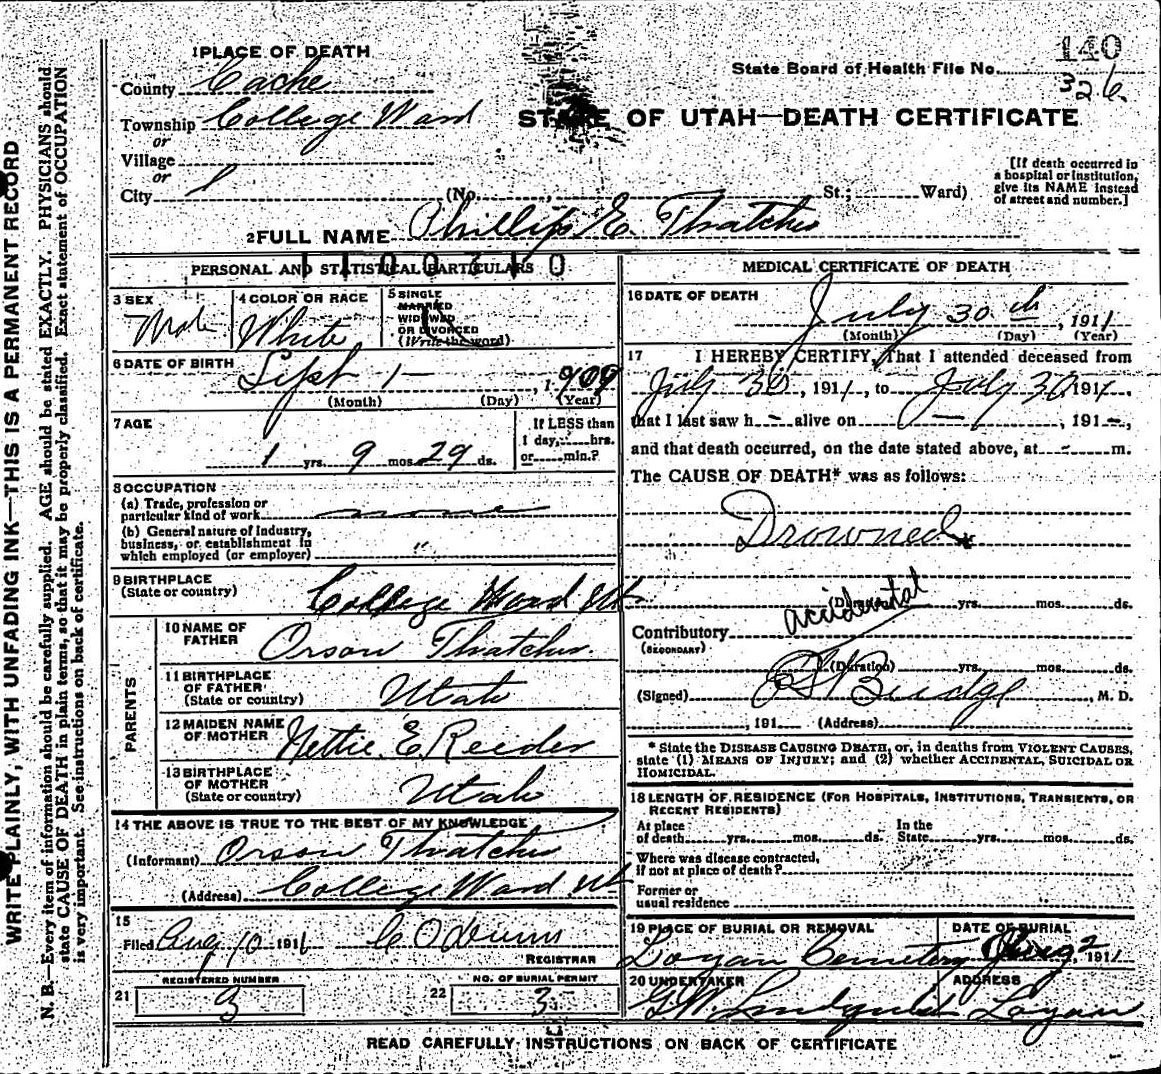 140
326
1 PLACE OF DEATH
State Board of Health File No.
County Cache
Township College Ward
STATE OF UTAH—DEATH CERTIFICATE
or
Village
or
City (No. , St.; Ward)
[If death occurred in
a hospital or institution,
give its NAME instead
of street and number.]
2 FULL NAME Phillip E. Thatcher
1100310
PERSONAL AND STATISTICAL PARTICULARS
3 SEX
Male
4 COLOR OR RACE
White
5 SINGLE
MARRIED
WIDOWED
OR DIVORCED
(Write the word)
6 DATE OF BIRTH Sept 1 — , 1 909
(Month) (Day) (Year)
7 AGE
1 yrs. 9 mos. 29 ds.
If LESS than
1 day, hrs.
or min.?
8 OCCUPATION
(a) Trade, profession or
particular kind of work none
(b) General nature of Industry,
business, or establishment in
which employed (or employer) "
9 BIRTHPLACE
(State or country) College Ward Ut
PARENTS
10 NAME OF
FATHER Orson Thatcher.
11 BIRTHPLACE
OF FATHER
(State or country) Utah
12 MAIDEN NAME
OF MOTHER Nettie E. Reeder
13 BIRTHPLACE
OF MOTHER
(State or country) Utah
14 THE ABOVE IS TRUE TO THE BEST OF MY KNOWLEDGE
(Informant) Orson Thatcher
(Address) College Ward Ut
15
Filed Aug 10 1911 C O Dunn
REGISTRAR
REGISTERED NUMBER
21 3
NO. OF BURIAL PERMIT
22 3
MEDICAL CERTIFICATE OF DEATH
16 DATE OF DEATH
July 30th , 1911
(Month) (Day) (Year)
17 I HEREBY CERTIFY, That I attended deceased from
July 30, 1911, to July 30 1911,
that I last saw h — alive on — , 191 —,
and that death occurred, on the date stated above, at — m.
The CAUSE OF DEATH* was as follows:
Drowned
accidental
(Duration) yrs. mos. ds.
Contributory
(SECONDARY)
(Duration) yrs. mos. ds.
(Signed) Budge, M. D.
, 191 (Address)
* State the DISEASE CAUSING DEATH, or, in deaths from VIOLENT CAUSES,
state (1) MEANS OF INJURY; and (2) whether ACCIDENTAL, SUICIDAL OR
HOMICIDAL.
18 LENGTH OF RESIDENCE (FOR HOSPITALS, INSTITUTIONS, TRANSIENTS, OR
RECENT RESIDENTS)
At place
of death yrs. mos. ds.
In the
State yrs. mos. ds.
Where was disease contracted,
if not at place of death?
Former or
usual residence
19 PLACE OF BURIAL OR REMOVAL
Logan Cemetery
DATE OF BURIAL
Aug 2 1911
20 UNDERTAKER
G W Lindquist
ADDRESS
Logan
READ CAREFULLY INSTRUCTIONS ON BACK OF CERTIFICATE
WRITE PLAINLY, WITH UNFADING INK—THIS IS A PERMANENT RECORD
N. B.—Every item of information should be carefully supplied. AGE should be stated EXACTLY. PHYSICIANS should
state CAUSE OF DEATH in plain terms, so that it may be properly classified. Exact statement of OCCUPATION
is very important. See instructions on back of certificate.